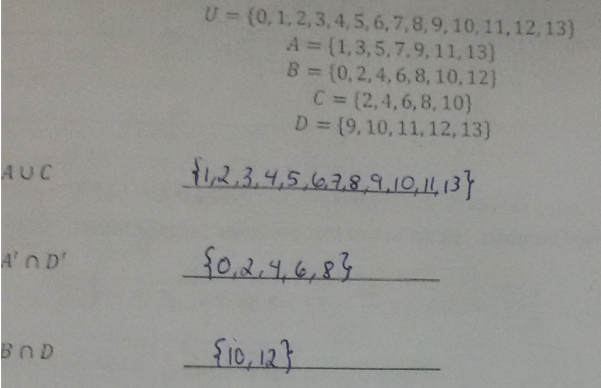 U = {0, 1, 2, 3, 4, 5, 6, 7, 8, 9, 10, 11, 12, 13}
A = {1, 3, 5, 7, 9, 11, 13}
B = {0, 2, 4, 6, 8, 10, 12}
C = {2, 4, 6, 8, 10}
D = {9, 10, 11, 12, 13}
A ∪ C {1,2,3,4,5,6,7,8,9,10,11,13}
A' ∩ D' {0,2,4,6,8}
B ∩ D {10,12}